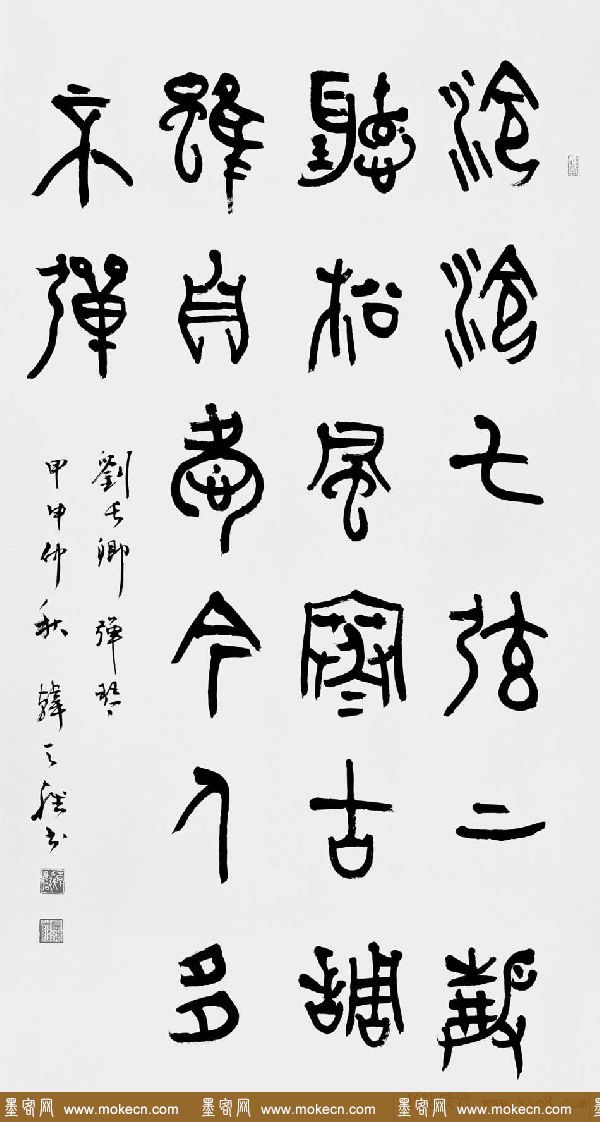 泠泠七弦上靜
聽松風寒古調
雖自愛今人多
不彈
劉長卿 彈琴
甲申仲秋 韓天雍书
墨客网 www.mokecn.com 墨客网 www.mokecn.com 墨客网 www.mokecn.com